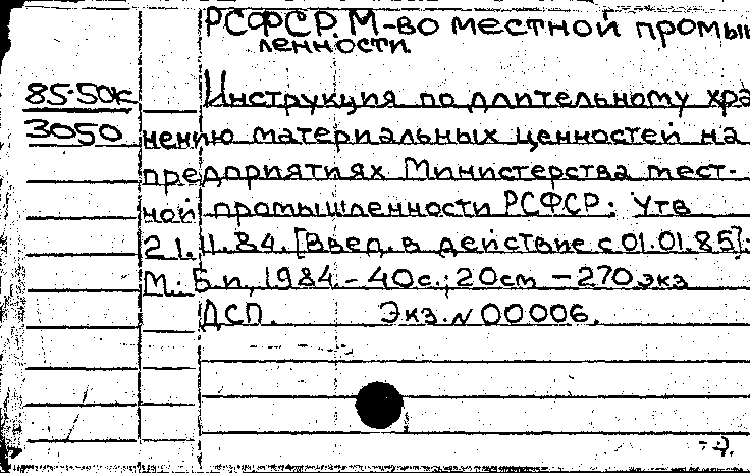 РСФСР. М-во местной промыш
ленности
85-50к
Инструкция по длительному хра
3050
нению материальных ценностей на
предприятиях Министерства мест-
ной промышленности РСФСР: Утв
21.11.84. [Введ. в действие с 01.01.85]:
М.: Б.и., 1984 - 40с.; 20см - 270 экз
ДСП. Экз. № 00006.